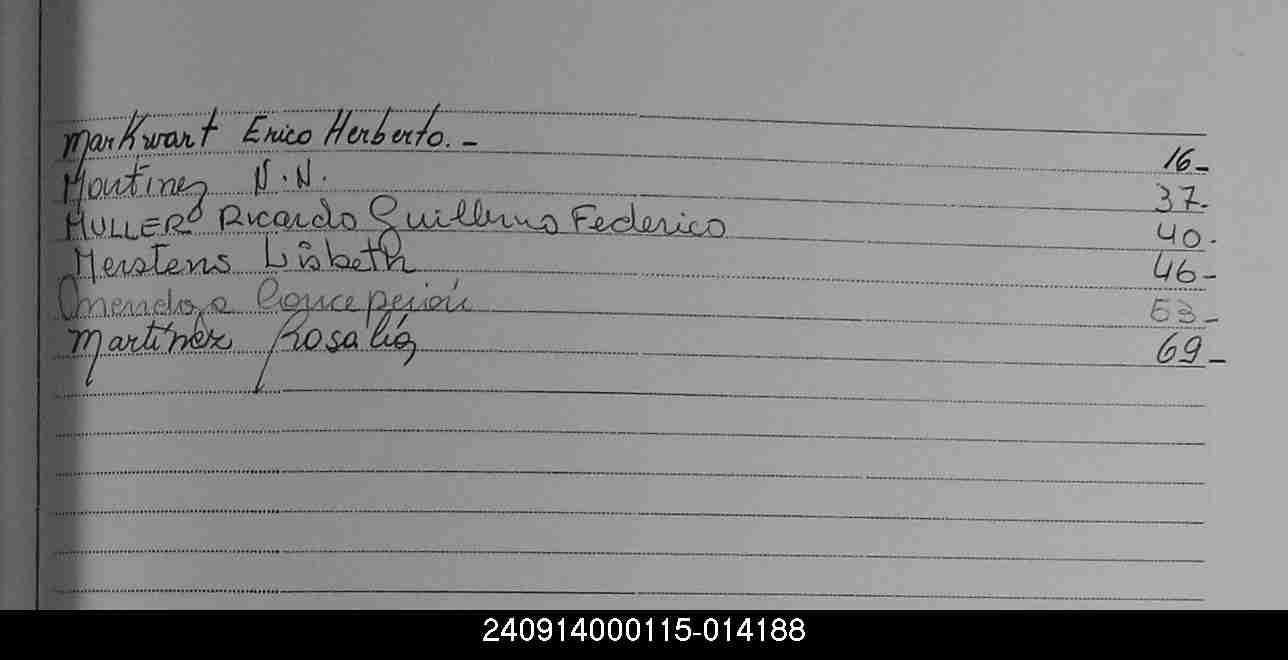 Markwart Erico Herberto.- 16-
Martinez N.N. 37-
MULLER Ricardo Guillermo Federico 40-
Merstens Lisbeth 46-
Mendoza Concepción 53-
Martínez Rosalía 69-
240914000115-014188